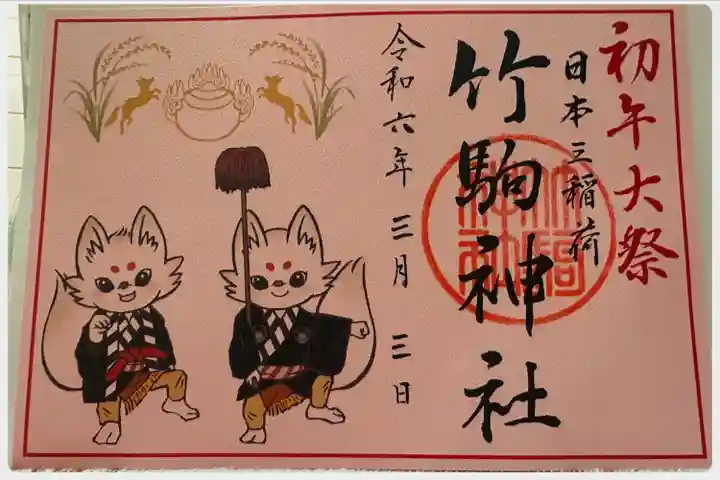 初午大祭
日本三稲荷
竹駒神社
令和六年 三月 三日